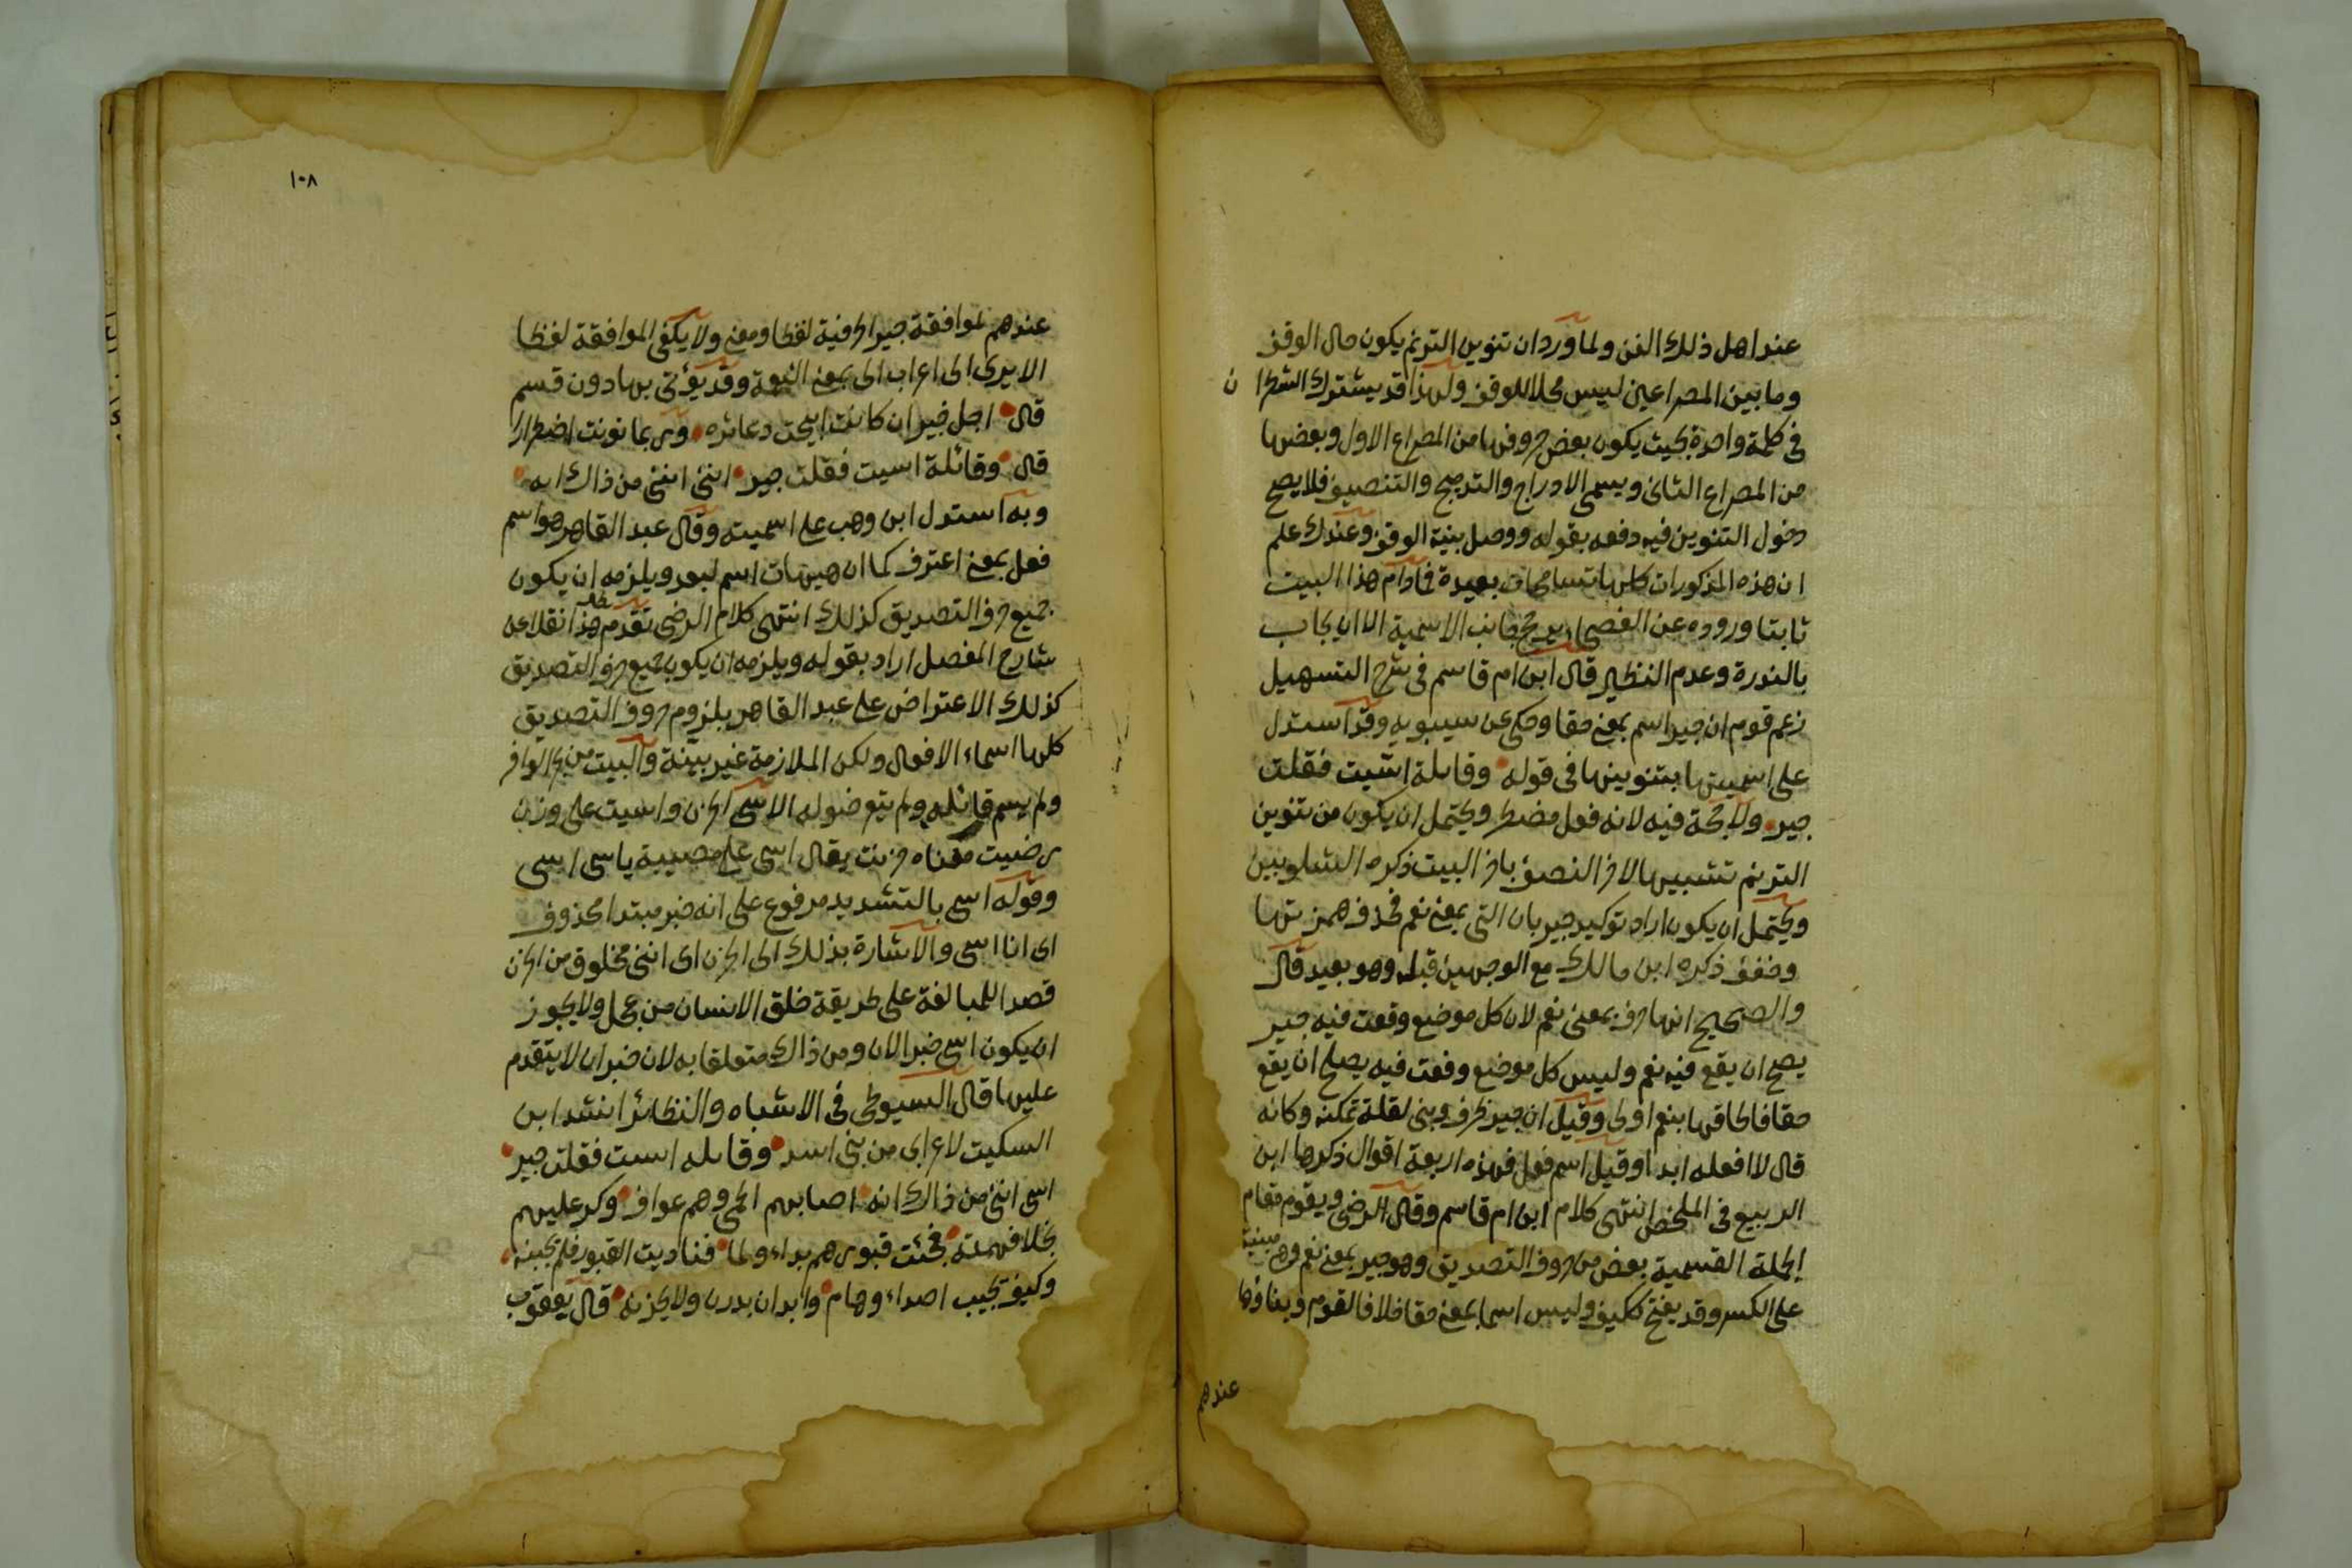 عند اهل ذلك الفن ولما ورد ان تنوين الترنم يكون حال الوقف
وما بين المصراعين ليس محلا للوقف ولهذا قد يشترك الشطرا ن
فى كلمة واحدة بحيث يكون بعض حروفها من المصراع الاول وبعضها
من المصراع الثانى ويسمى الادراج والتدميج والتنصيف فلا يصح
دخول التنوين فيه دفعه بقوله ووصل بنية الوقف وعندك علم
ان هذه المذكورات كلها تسامحات بعيدة فما دام هذا البيت
ثابتا وروده عن الفصحاء يرجح جانب الاسمية الا ان يجاب
بالندرة وعدم النظير قال ابن ام قاسم فى شرح التسهيل
زعم قوم ان جير اسم بمعنى حقا وحكى عن سيبويه وقد استدل
على اسميتها بتنوينها فى قوله وقايلة اسيت فقلت
جير ولا حجة فيه لانه فعل مضطر ويحتمل ان يكون من تنوين
الترنم تشبيها لاخر النصف باخر البيت ذكره الشلوبين
ويحتمل ان يكون اراد توكيد جير بان التى بمعنى نعم فحذف همزتها
وخفف ذكره ابن مالك مع الوجهين قبله وهو بعيد قال
والصحيح انها حرف بمعنى نعم لان كل موضع وقعت فيه جير
يصح ان يقع فيه نعم وليس كل موضع وقعت فيه يصلح ان يقع
حقا فالحاقها بنعم اولى وقيل ان جير ظرف وبنى لقلة تمكنه وكانه
قال لا افعله ابدا وقيل اسم فعل فهذه اربعة اقوال ذكرها ابن
الربيع فى الملخص انتهى كلام ابن ام قاسم وقال الرضى ويقوم مقام
الجملة القسمية بعض من حروف التصديق وهو جير بمعنى نعم وهى مبنية
على الكسر وقد يفتح ككيف وليس اسما بمعنى حقا خلافا لقوم وبناؤها
عندهم
١٠٨
عندهم لموافقة جير الحرفية لفظا ومعنى ولا يكفى الموافقة لفظا
الا يرى الى اعراب الى بمعنى النعمة وقد يؤتى بها دون قسم
قال اجل جير ان كانت ابيحت دعاثره وربما نونت اضطرارا
قال وقائلة اسيت فقلت جير اسى اننى من ذاك انه
وبه استدل ابن وهب على اسميته وقال عبد القاهر هو اسم
فعل بمعنى اعترف كما ان هيهات اسم لبعد ويلزمه ان يكون
جميع حروف التصديق كذلك انتهى كلام الرضى تقدم هذا نقلا عن
شارح المفصل اراد بقوله ويلزمه ان يكون جميع حروف التصديق
كذلك الاعتراض على عبد القاهر بلزوم حروف التصديق
كلها اسماء الافعال ولكن الملازمة غير بيّنة والبيت من بحر الوافر
ولم يسم قائله ولم يتعرضوا له الاسى الحزن واسيت على وزن
رضيت معناه حزنت يقال اسى على مصيبة ياسى اسى
وقوله اسى بالتشديد مرفوع على انه خبر مبتدا محذوف
اى انا اسى والاشارة بذلك الى الحزن اى اننى مخلوق من الحزن
قصدا للمبالغة على طريقة خلق الانسان من عجل ولا يجوز
ان يكون اسى خبرا لان ومن ذاك متعلقا به لان خبر ان لا يتقدم
عليها قال السيوطى فى الاشباه والنظائر انشد ابن
السكيت لاعرابى من بنى اسد وقايله اسيت فقلت جير
اسى اننى من ذاك انه اصابهم الحمى وهم عواف وكر عليهم
فجئت قبورهم بداء ولما فناديت القبور فلم يجبنه
وكيف تجيب اصداء وهام وابدان بدرن ولا يحزنه قال يعقوب